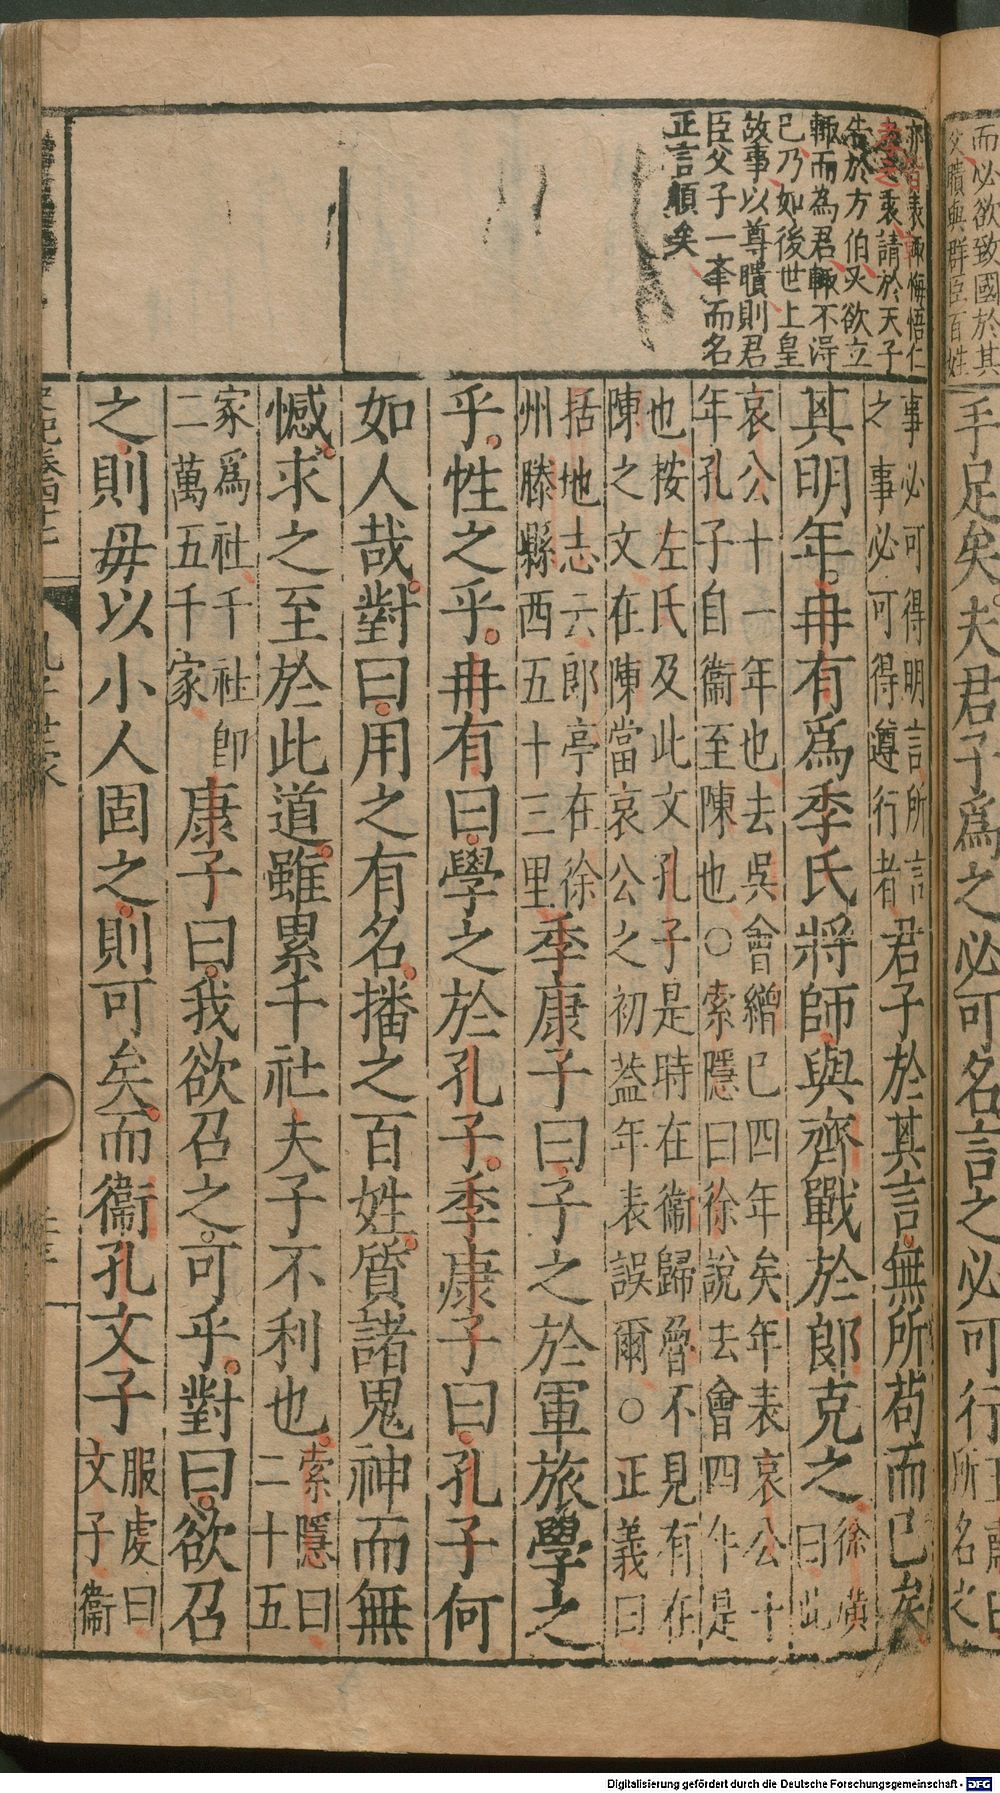 而必欲致國於其
父聵與群臣百姓
手足矣夫君子爲之必可名言之必可行
所名之
亦皆表輒悔悟仁
孝之衷請於天子
告於方伯必欲立
輒而為君輒不淂
已乃如後世上皇
故事以尊聵則君
臣父子一夆而名
正言順矣
事必可得明言所言
之事必可得遵行者
君子於其言無所苟而已矣
其明年冉有爲季氏將師與齊戰於郞克之
徐廣
曰此
哀公十一年也去吳會繒已四年矣年表哀公十
年孔子自衞至陳也○索隱曰徐說去會四年是
也按左氏及此文孔子是時在衞歸魯不見有在
陳之文在陳當哀公之初葢年表誤爾○正義曰
括地志云郎亭在徐
州滕縣西五十三里
季康子曰子之於軍旅學之
乎性之乎冉有曰學之於孔子季康子曰孔子何
如人哉對曰用之有名播之百姓質諸鬼神而無
憾求之至於此道雖累千社夫子不利也
索隱曰
二十五
家爲社千社卽
二萬五千家
康子曰我欲召之可乎對曰欲召
之則毋以小人固之則可矣而衞孔文子
服虔曰
文子衞
孔子世家
Digitalisierung gefördert durch die Deutsche Forschungsgemeinschaft - DFG